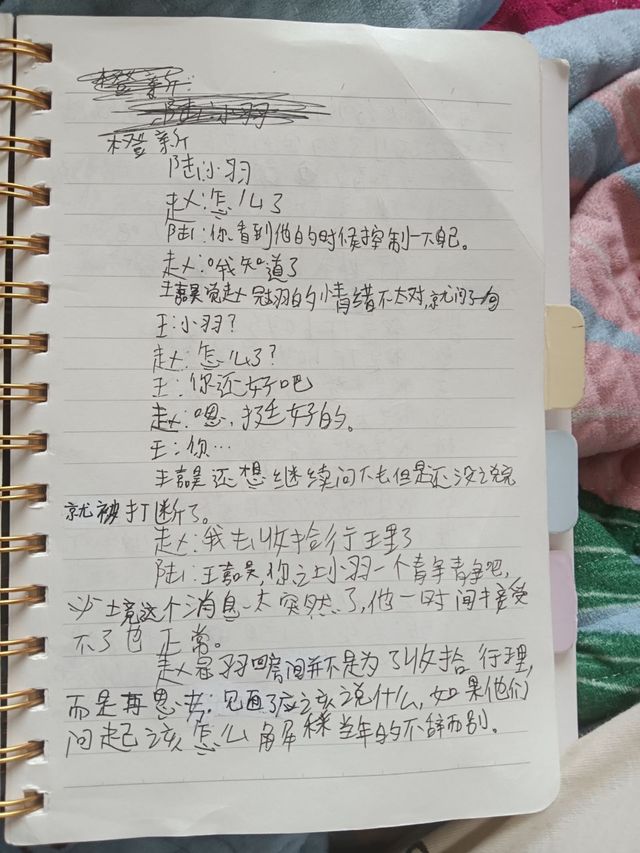 橙新
陆小羽
赵:怎么了
陆:你看到他的时候控制一下自己。
赵:哦知道了
王嘉昊觉赵冠羽的情绪不太对,就问了一句
王:小羽?
赵:怎么了?
王:你还好吧
赵:嗯,挺好的。
王:你…
王嘉昊还想继续问下去但是还没说完
就被打断了。
赵:我去收拾行李了
陆:王嘉昊,你让小羽一个静静吧,
必竟这个消息太突然了,他一时间接受
不了也正常。
赵冠羽回房间并不是为了收拾行理,
而是再思考;见面了应该说什么,如果他们
问起该怎么解释当年的不辞而别。